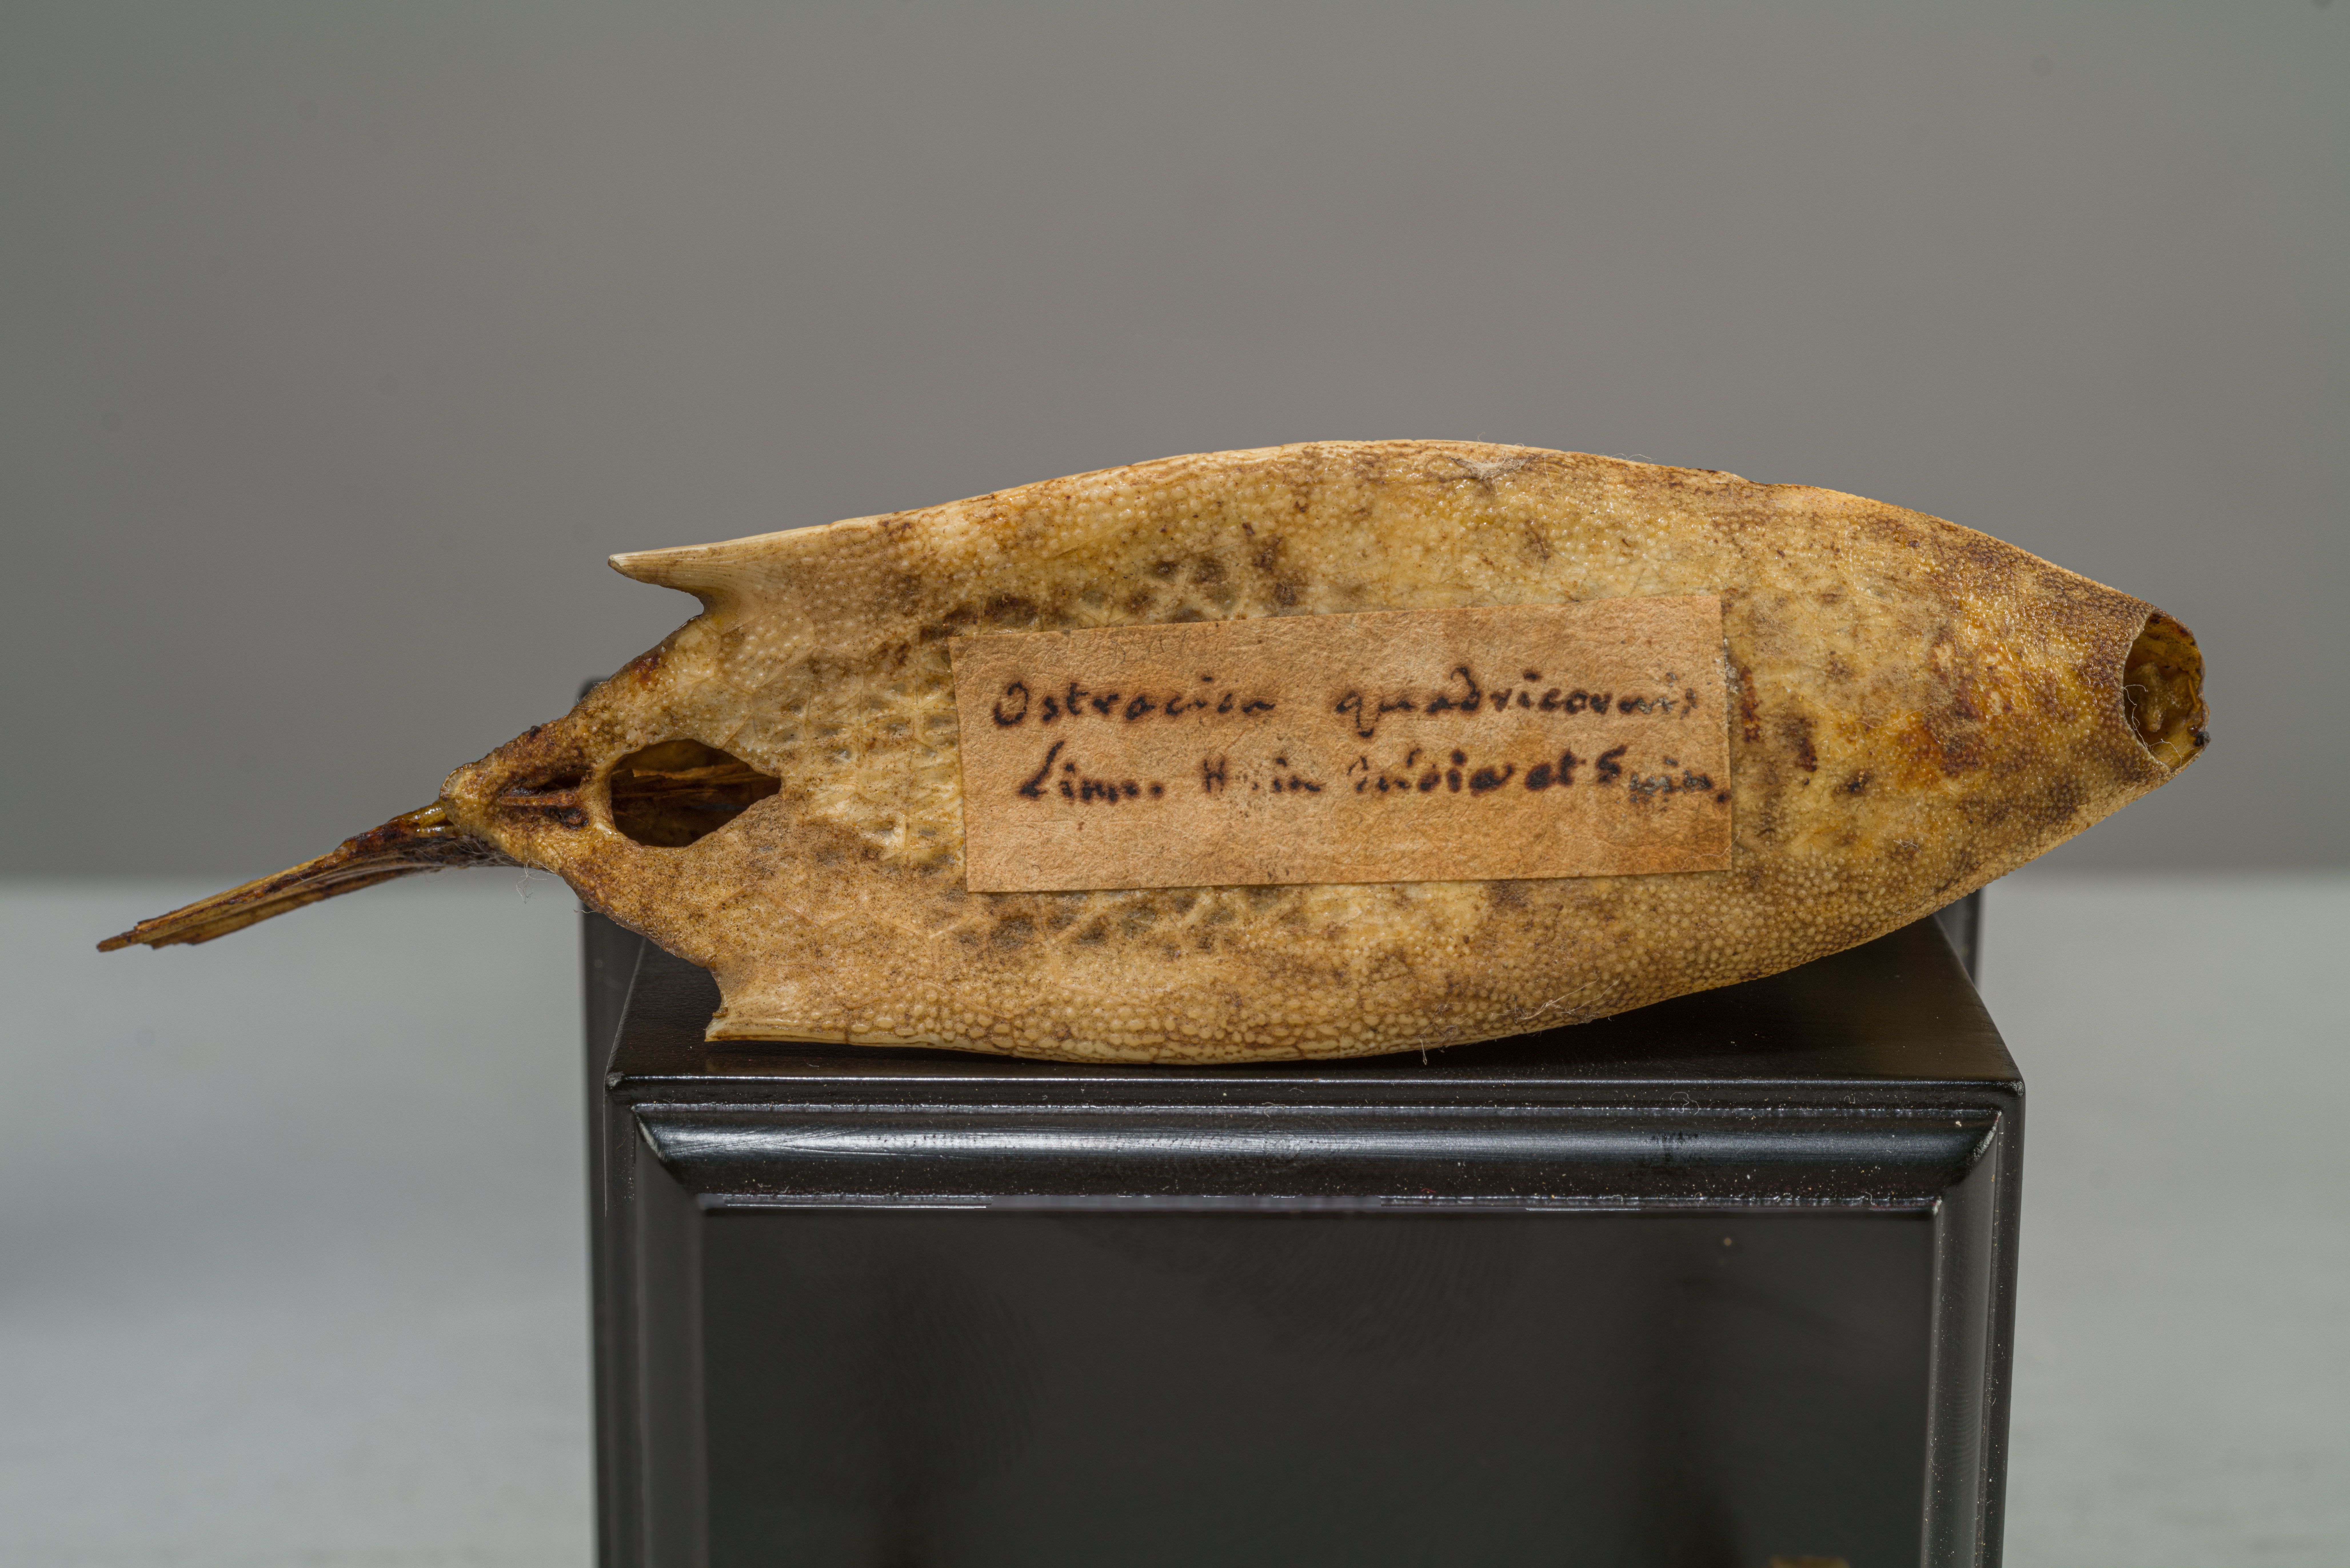 Ostracion quadricornis
Linn. H. in India et